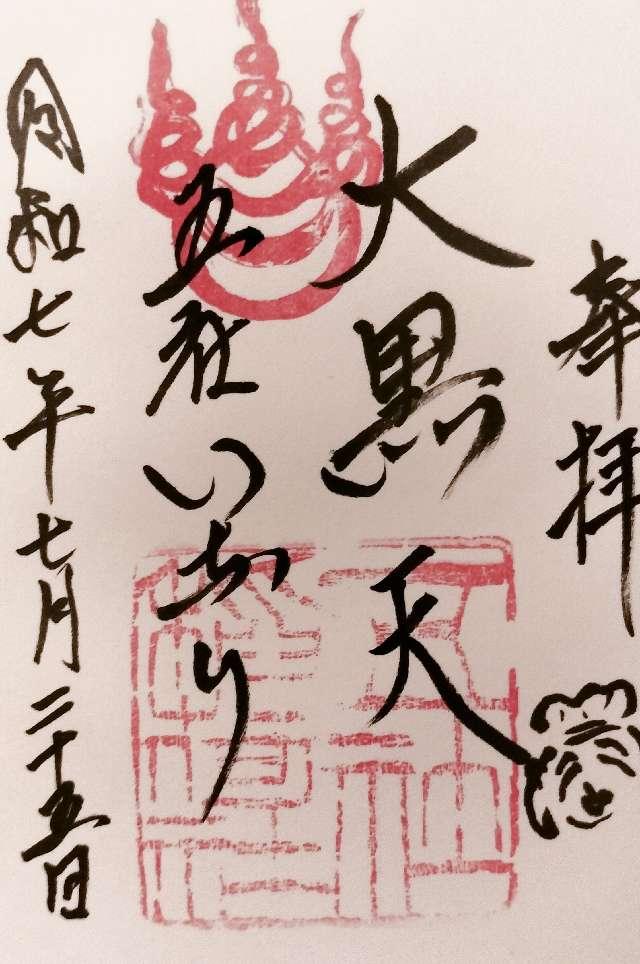 奉拝
大黒天
五社いなり
令和七年七月二十五日